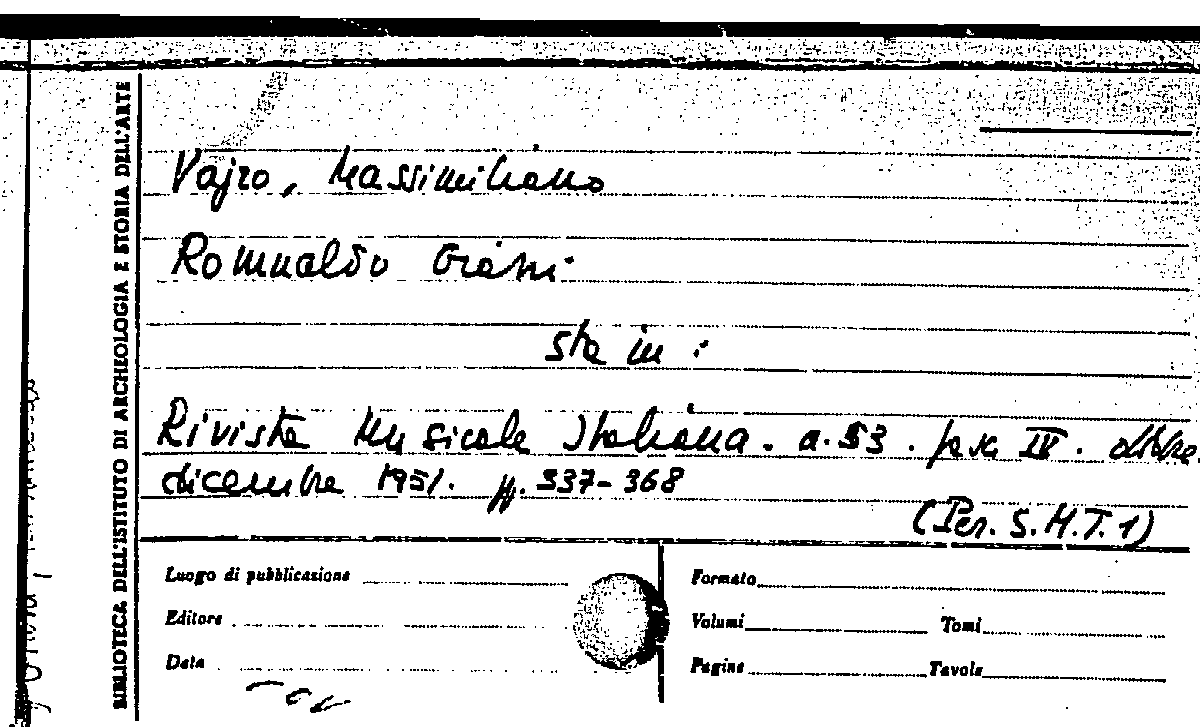 BIBLIOTECA DELL'ISTITUTO DI ARCHEOLOGIA E STORIA DELL'ARTE
Vajro, Massimiliano
Romualdo Giani
sta in:
Rivista Musicale Italiana. a. 53. fasc. IV. ottobre
dicembre 1951. pp. 337-368
(Per. S.M.T.1)
Luogo di pubblicazione
Formato
Editore
Volumi Tomi
Data
Pagine Tavole